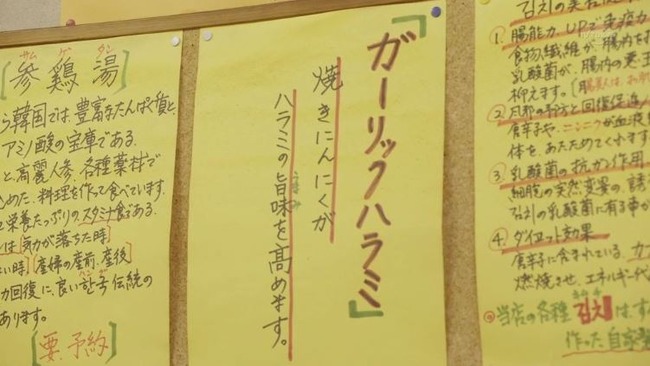 サムゲタン
[参鶏湯]
ら韓国では、豊富なたんぱく質と、
アミノ酸の宝庫である。
と高麗人参、各種薬材で
めた、料理を作って食べています。
栄養たっぷりのスタミナ食である。
は[気力が落ちた時]
い時][産婦の産前、産後]
力回復に、良い한국伝統の
あります。
[要、予約]
『ガーリックハラミ』
焼きにんにくが
ハラミの旨味を高めます。
① 腸能力UPで免疫力
食物繊維が、腸内を
乳酸菌が、腸内の悪玉
抑えます。
回復促進
唐辛子や、ニンニクが血液
体を、あたためてくれます
③ 乳酸菌の抗がん作用
細胞の突然変異の、誘
김치の乳酸菌に有る
④ ダイエット効果
唐辛子に含まれている、カ
燃焼させ、エネルギー代
◎当店の各種김치は、す
作った自家製